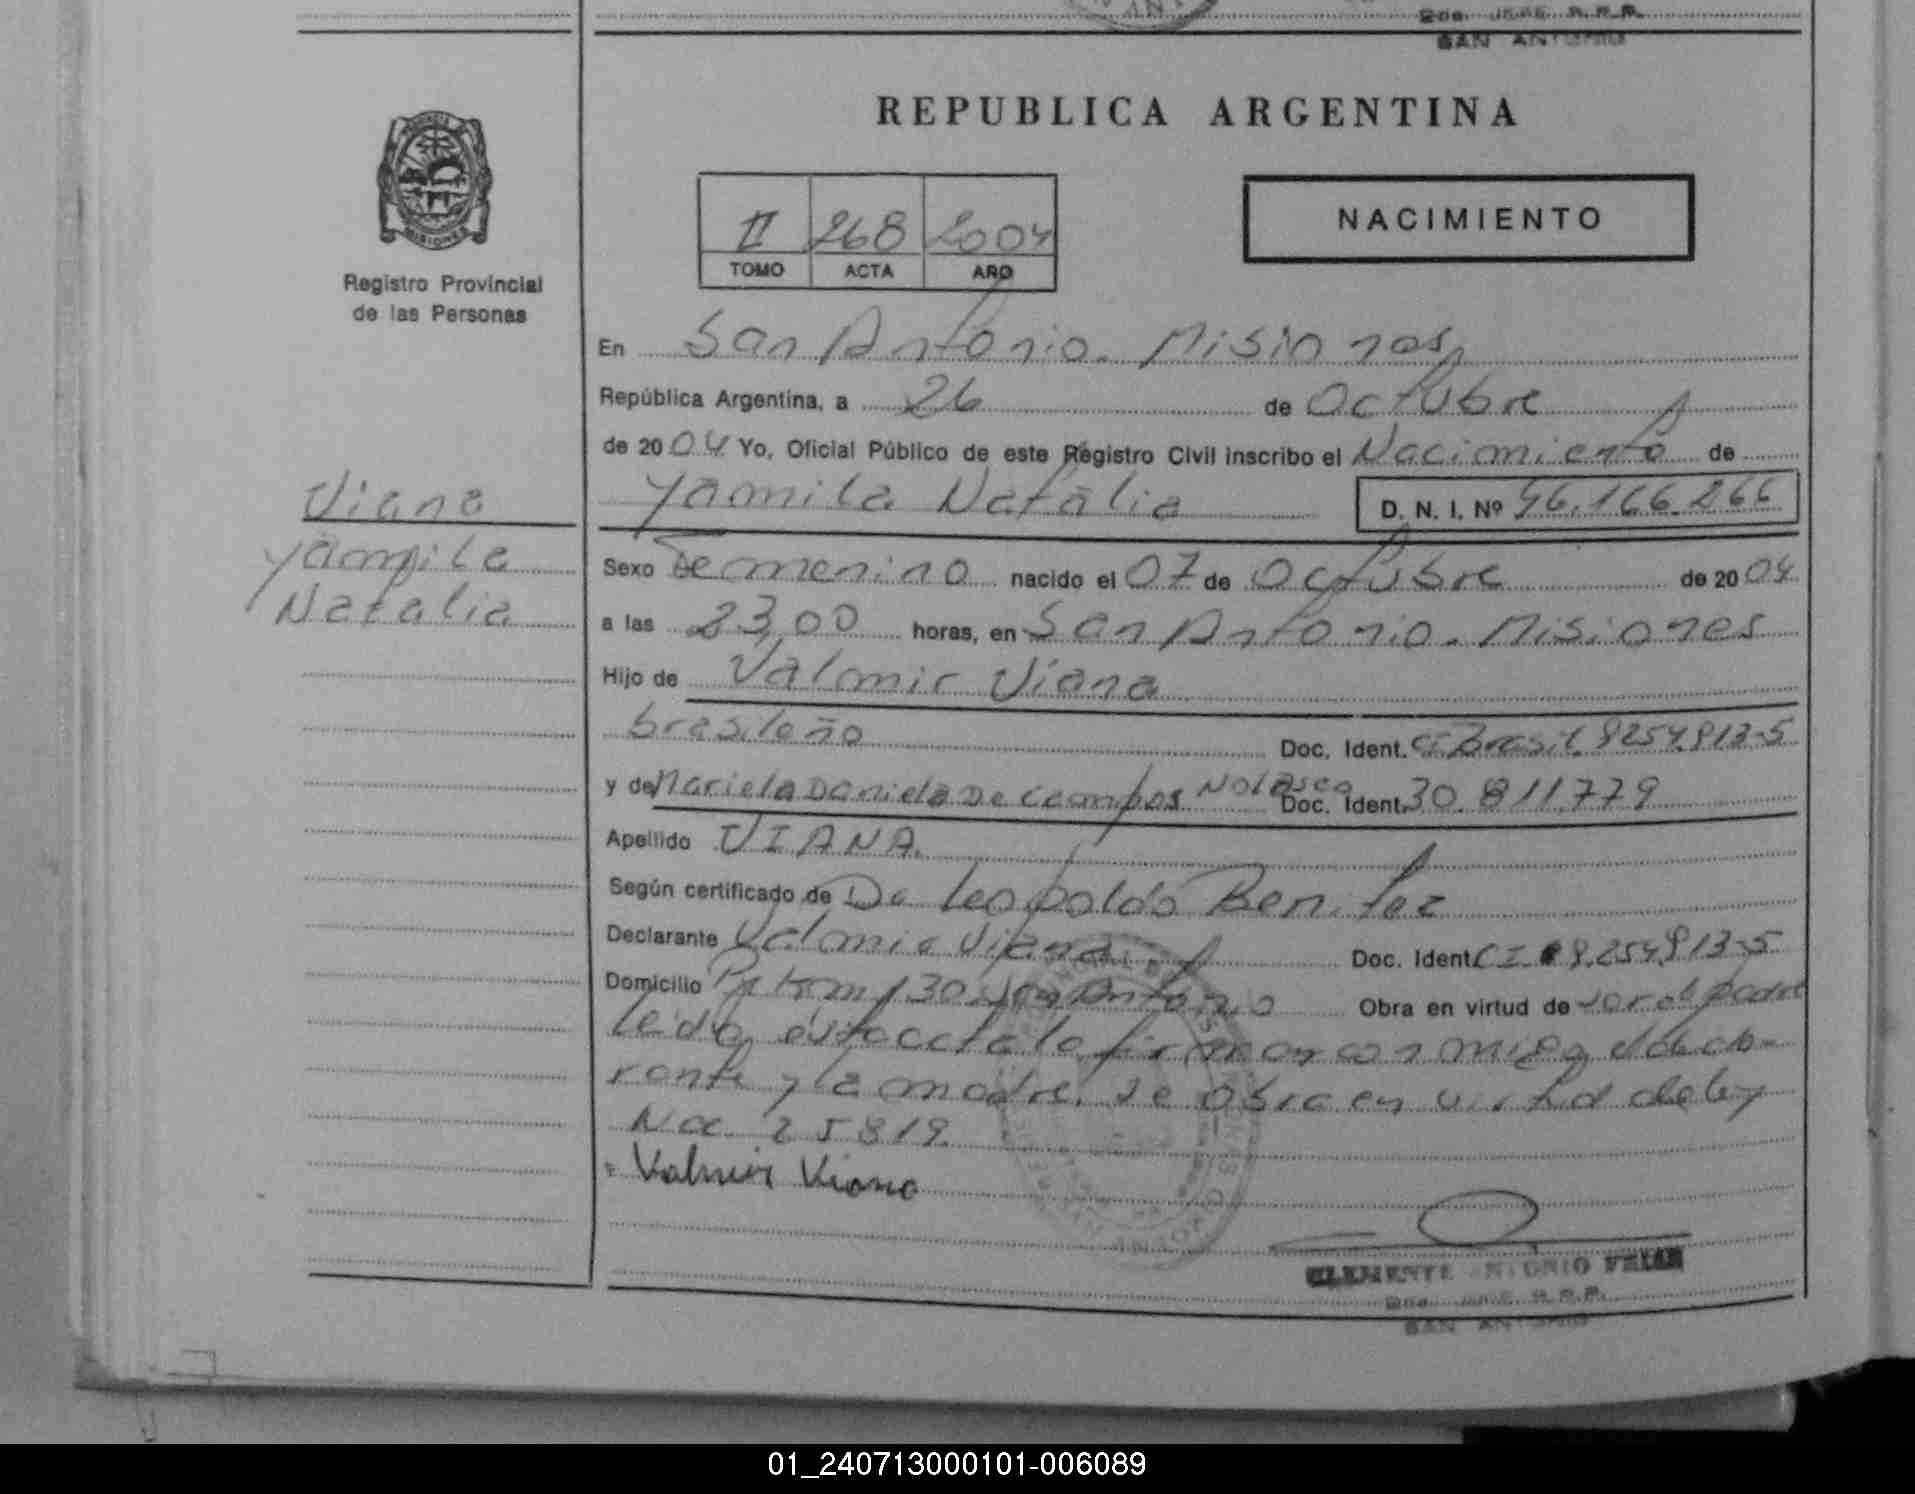 SAN ANTONIO
PROVINCIA
MISIONES
Registro Provincial
de las Personas
REPUBLICA ARGENTINA
II 268 2004
TOMO ACTA AÑO
NACIMIENTO
En San Antonio. Misiones
República Argentina, a 26 de Octubre
de 2004 Yo, Oficial Público de este Registro Civil inscribo el Nacimiento de
Yamila Natalia D. N. I. Nº 46.166.266
Viana
Yamila
Natalia
Sexo Femenino nacido el 07 de Octubre de 2004
a las 23,00 horas, en San Antonio. Misiones
Hijo de Valmir Viana
brasileño Doc. Ident. CI Brasil. 9254913-5
y de Mariela Daniela De Campos Nolasco Doc. Ident. 30.811.779
Apellido VIANA.
Según certificado de Dr Leopoldo Benitez
Declarante Valmir Viana Doc. Ident. CI 9.254.913-5
Domicilio San Antonio Obra en virtud de ser el padre
Leida esta acta la firman conmigo el decla-
rante y la madre. Se obra en virtud de ley
Nac. 25819.
Valmir Viana
CLEMENTE ANTONIO
SAN ANTONIO
01_240713000101-006089